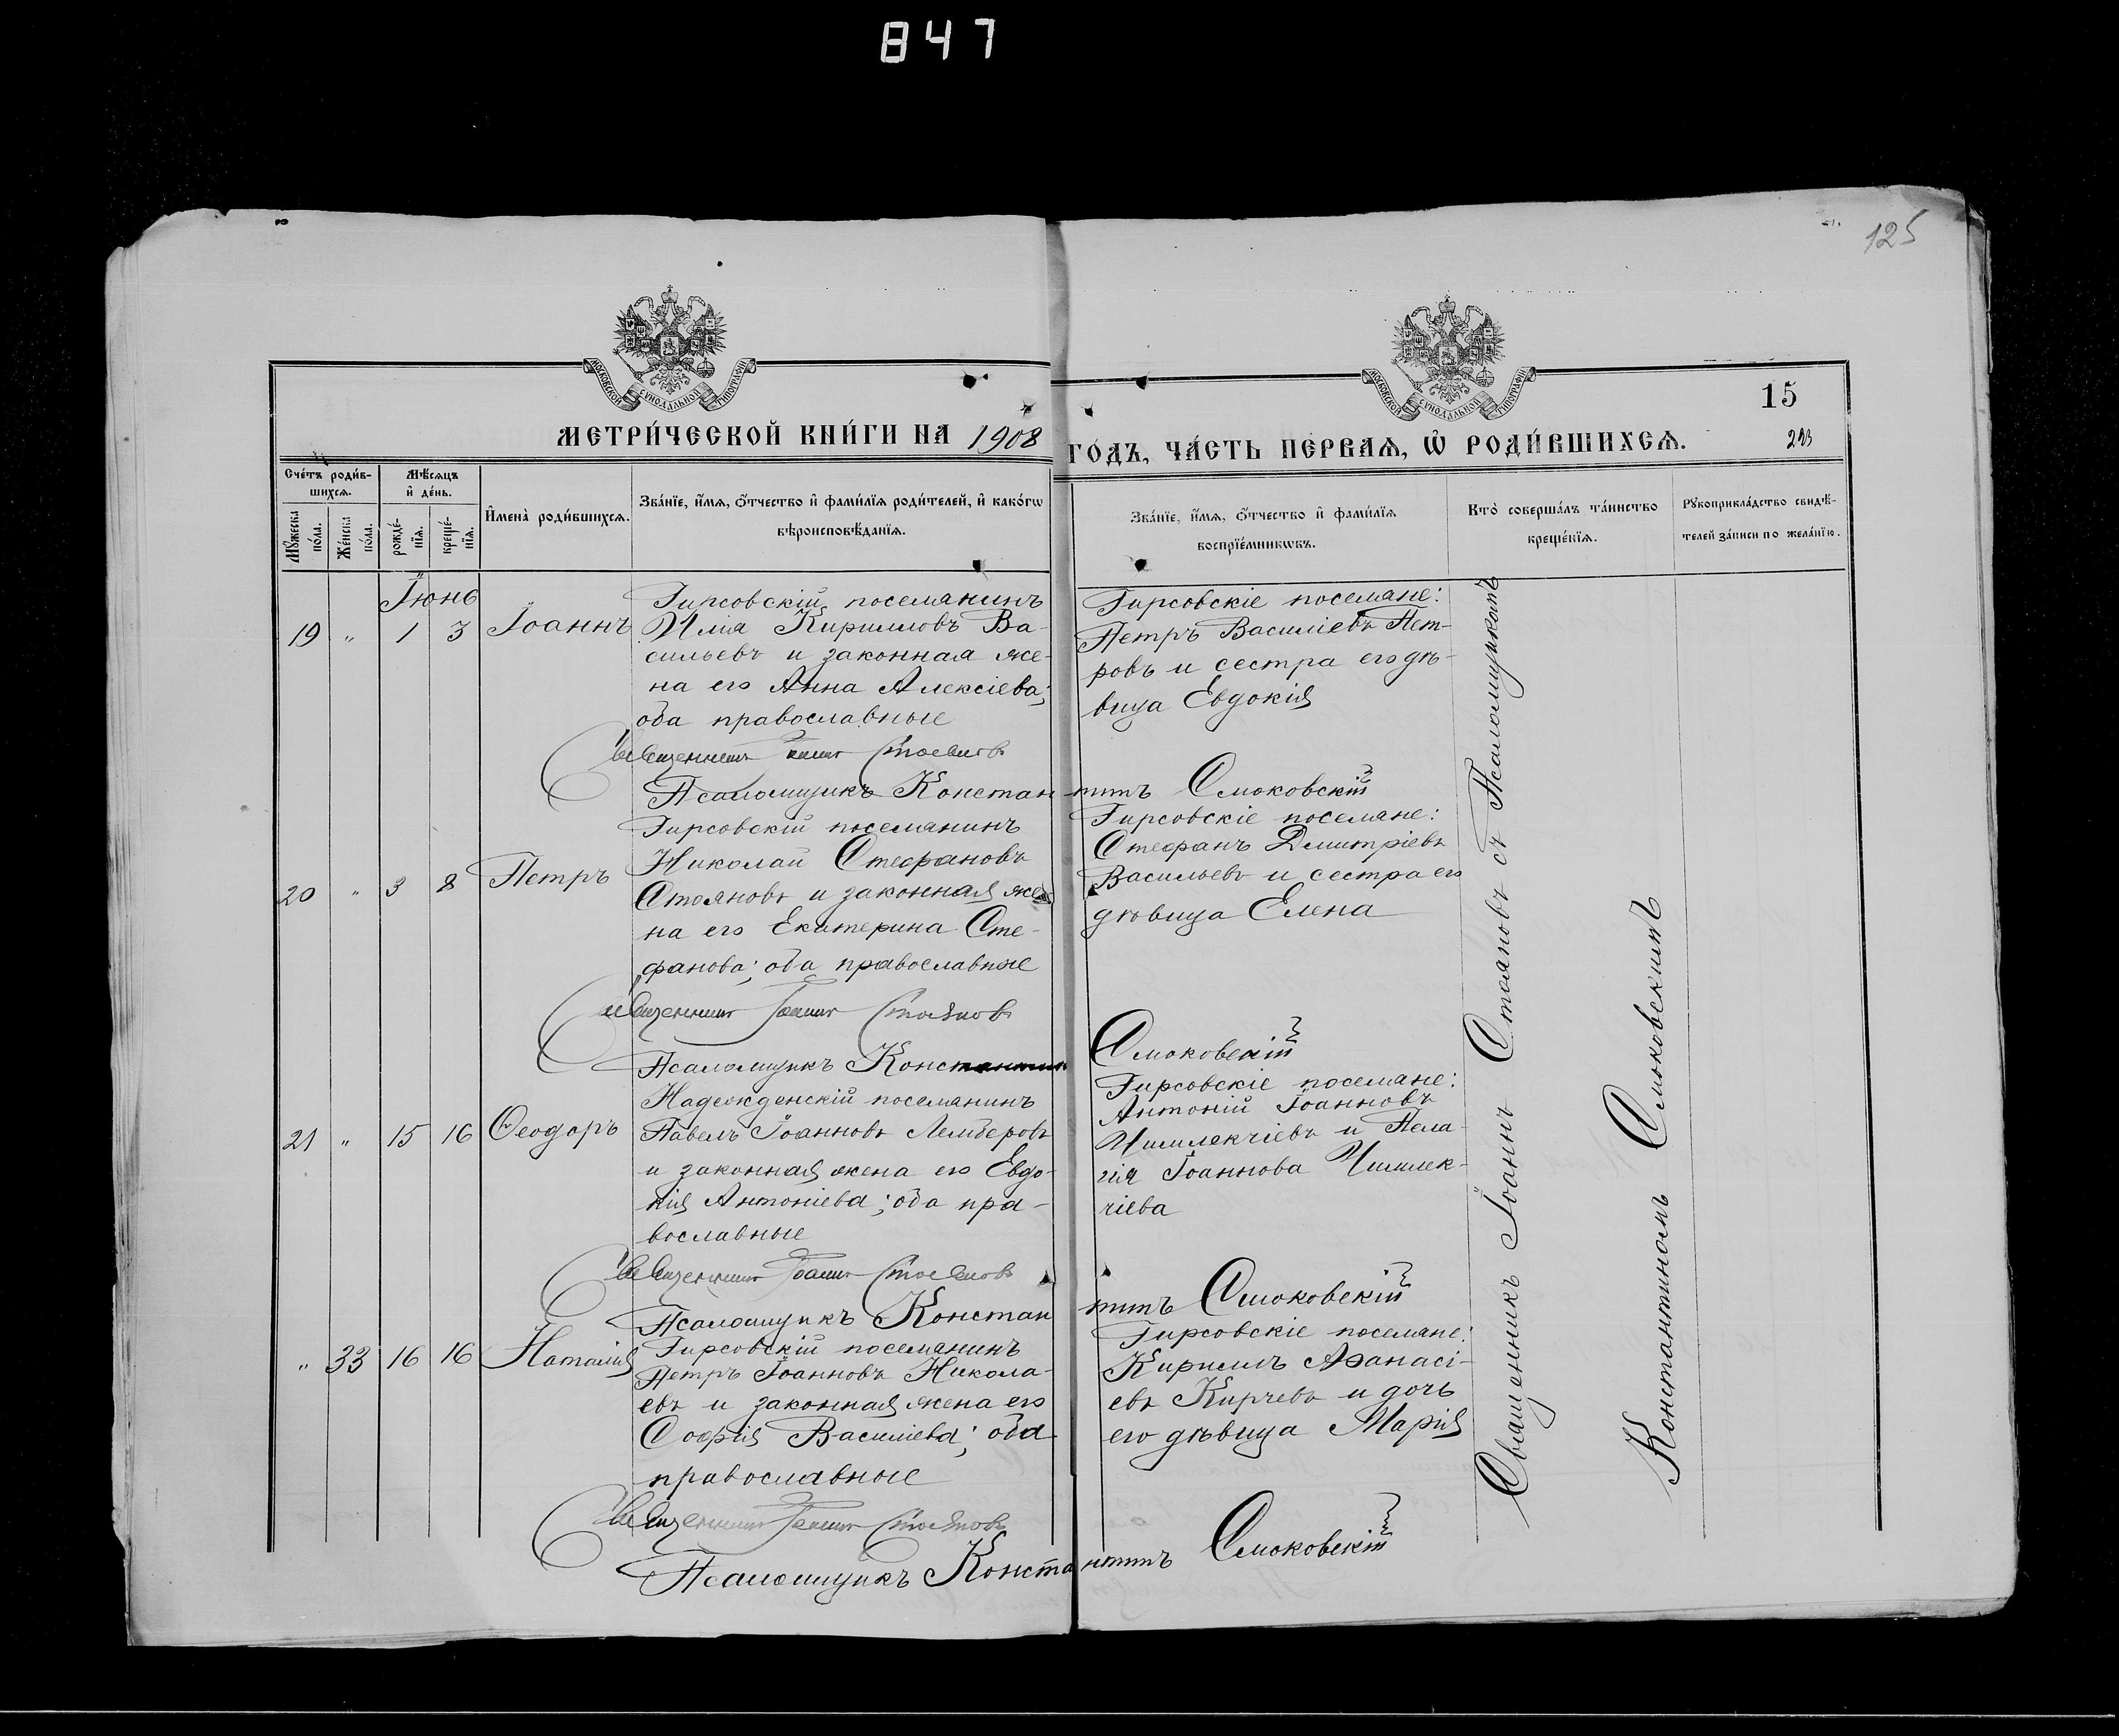 847
125
МОСКОВСКОЙ СѴНОДАЛЬНОЙ ТИПОГРАФІИ
МОСКОВСКОЙ СѴНОДАЛЬНОЙ ТИПОГРАФІИ
15
МЕТРИ́ЧЕСКОЙ КНИ́ГИ НА 1908 ГО́ДЪ, ЧА́СТЬ ПЕ́РВАѦ, Ѡ҆ РОДИ́ВШИХСѦ.
Сче́тъ роди́в-
шихсѧ.
Мꙋ́жеска по́ла.
Же́нска по́ла.
Мѣ́сѧцъ
и҆ де́нь.
рожде́-
нїѧ.
креще́-
нїѧ.
И҆мена̀ роди́вшихсѧ.
Зва́нїе, и҆́мѧ, ѻ҆́тчество и҆ фами́лїѧ роди́телей, и҆ како́гѡ
вѣроисповѣ́данїѧ.
Зва́нїе, и҆́мѧ, ѻ҆́тчество и҆ фами́лїѧ
воспрїе́мникѡвъ.
Кто̀ соверша́лъ та́инство
креще́нїѧ.
Рꙋкоприкла́дство свидѣ́-
телей за́писи по жела́нїю.
Іюнь
19 " 1 3 Іоаннъ
Гирсовскій поселянинъ
Илія Кирилловъ Ва-
сильевъ и законная же-
на его Анна Алексіева;
оба православные
Гирсовскіе поселяне:
Петръ Василіевъ Пет-
ровъ и сестра его дѣ-
вица Евдокія
Священникъ Іоаннъ Стояновъ
Псаломщикъ Константинъ Смоковскій
20 " 3 8 Петръ
Гирсовскій поселянинъ
Николай Стефановъ
Стояновъ и законная же-
на его Екатерина Сте-
фанова; оба православные
Гирсовскіе поселяне:
Стефанъ Димитріевъ
Васильевъ и сестра его
дѣвица Елена
Священникъ Іоаннъ Стояновъ
Псаломщикъ Константинъ Смоковскій
21 " 15 16 Ѳеодоръ
Надежденскій поселянинъ
Павелъ Іоанновъ Лемберовъ
и законная жена его Евдо-
кія Антоніева; оба пра-
вославные
Гирсовскіе поселяне:
Антоній Іоанновъ
Чимлекчіевъ и Пела-
гія Іоаннова Чимлек-
чіева
Священникъ Іоаннъ Стояновъ
Псаломщикъ Константинъ Смоковскій
" 33 16 16 Наталія
Гирсовскій поселянинъ
Петръ Іоанновъ Никола-
евъ и законная жена его
Софія Василіева; оба
православные
Гирсовскіе поселяне:
Кириллъ Аѳанасі-
евъ Кирчевъ и дочь
его дѣвица Марія
Священникъ Іоаннъ Стояновъ
Псаломщикъ Константинъ Смоковскій
Священникъ Іоаннъ Стояновъ съ Псаломщикомъ
Константиномъ Смоковскимъ